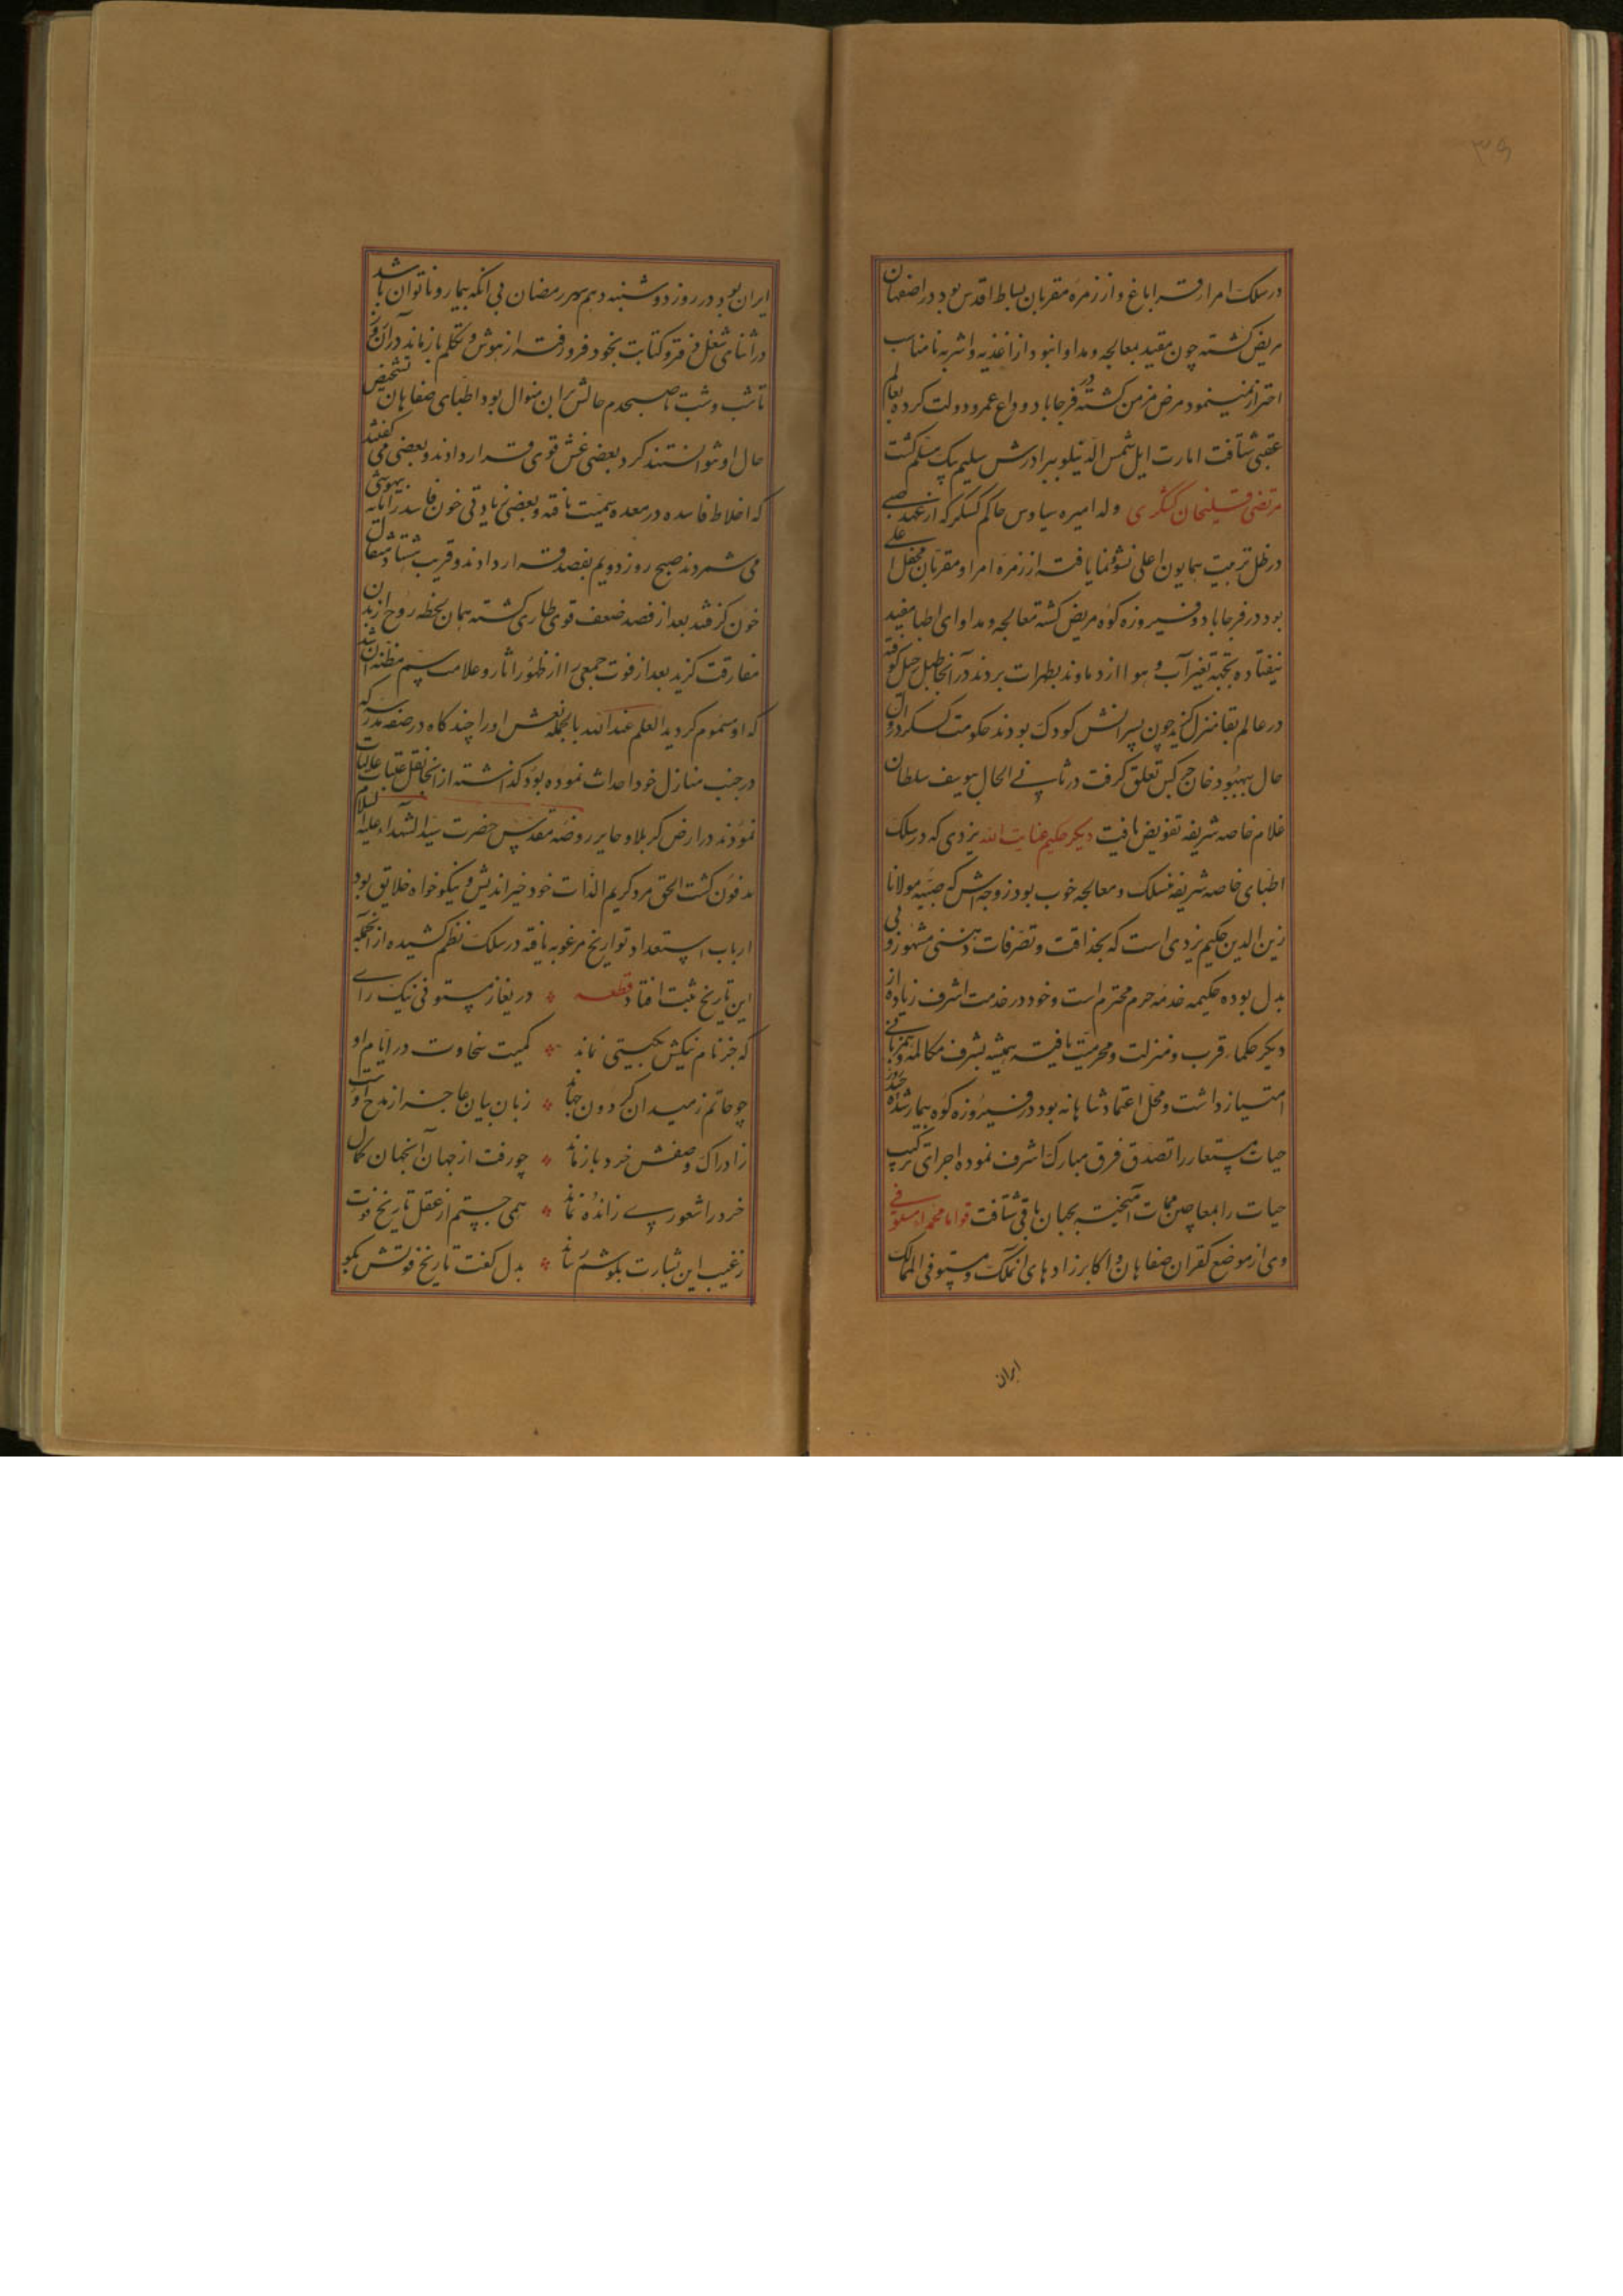 ۳۹
در سلک امراء قراباغ و از زمره مقربان بساط اقدس بود در اصفهان
مریض گشته چون مقید بمعالجه و مداوا نبود از اغذیه و اشربه نامناسب
احتراز نمینمود مرض مزمن گشته در فرحاباد وداع عمر و دولت کرده بعالم
عقبی شتافت امارت ایل شمس الدینلو ببرادرش سلیم بیک مسلم گشت
مرتضی قلیخان کسکری ولد امیره سیاوس حاکم کسکر که از عهد صبی
در ظل تربیت همایون اعلی نشو و نما یافته از زمره امرا و مقربان محفل اعلی
بود در فرحاباد و فیروزه کوه مریض گشته معالجه و مداوای اطبا مفید
نیفتاده بجهة تغیر آب و هوا از دماوند بطهرات بردند در آنجا طبل رحیل کوفته
در عالم بقا منزل گزید چون پسرانش کودک بودند حکومت کسکر در اوان
حال ببهبود خان چرکس تعلق گرفت در ثانی الحال بیوسف سلطان
غلام خاصه شریفه تفویض یافت دیگر حکیم عنایت الله یزدی که در سلک
اطبای خاصه شریفه منسلک و معالجه خوب بود زوجه اش که صبیه مولانا
زین الدین حکیم یزدی است که بحذاقت و تصرفات ذهنی مشهور و بی
بدل بوده حکیمه خدمه حرم محترم است و خود در خدمت اشرف زیاده از
دیگر حکما قرب و منزلت و محرمیت یافته همیشه بشرف مکالمه و همزبانی
امتیاز داشت و محل اعتماد شاهانه بود در فیروزه کوه بیمار شده جند روز
حیات مستعار را تصدق فرق مبارک اشرف نموده اجرای ترکیب
حیات را بمعاجین ممات آمیخته بجهان باقی شتافت قواما محمدا مستوفی
وی از موضع کفران صفاهان و اکابرزادهای آن ملک و مستوفی الممالک
ایران
ایران بود در روز دوشنبه دهم شهر رمضان بی آنکه بیمار و ناتوان باشد
در اثنای شغل دفتر و کتابت بخود فرو رفته از هوش و تکلم باز ماند در آن روز
تا شب و شب تا صبحدم حالش بر این منوال بود اطبای صفاهان تشخیص
حال او نتوانستند کرد بعضی غش قوی قرار دادند و بعضی می گفتند
که اخلاط فاسده در معده سمیت یافته و بعضی زیادتی خون فاسد را باعث بیهوشی
می شمردند صبح روز دویم بفصد قرار دادند و قریب هشتاد مثقال
خون گرفتند بعد از فصد ضعف قوی طاری گشته همان لحظه روح از بدن
مفارقت گزید بعد از فوت جمعی را از ظهور آثار و علامت سم مظنه آن شد
که او مسموم گردید العلم عند الله بالجمله نعش او را چند گاه در صفه مدرسه که
در جنب منازل خود احداث نموده بود گذاشته از آنجا نقل عتبات عالیات
نمودند در ارض کربلا و حایر روضه مقدس حضرت سید الشهداء علیه السلام
مدفون گشت الحق مرد کریم الذات خود خیراندیش و نیکو خواه خلایق بود
ارباب استعداد تواریخ مرغوبه یافته در سلک نظم کشیده از آنجمله
این تاریخ ثبت افتاد قطعه ❖ دریغا ز مستوفی نیک رای
که جز نام نیکش بگیتی نماند ❖ کمیت سخاوت در ایام او
چو حاتم ز میدان گردون جهاند ❖ زبان بیان عاجز از مدح اوست
ز ادراک وصفش خرد باز ماند ❖ چو رفت از جهان آنجهان کمال
خرد را شعور پی زانده نماند ❖ همی جستم از عقل تاریخ فوت
ز غیب این بشارت بگوشم رساند ❖ بدل گفت تاریخ فوتش بگو